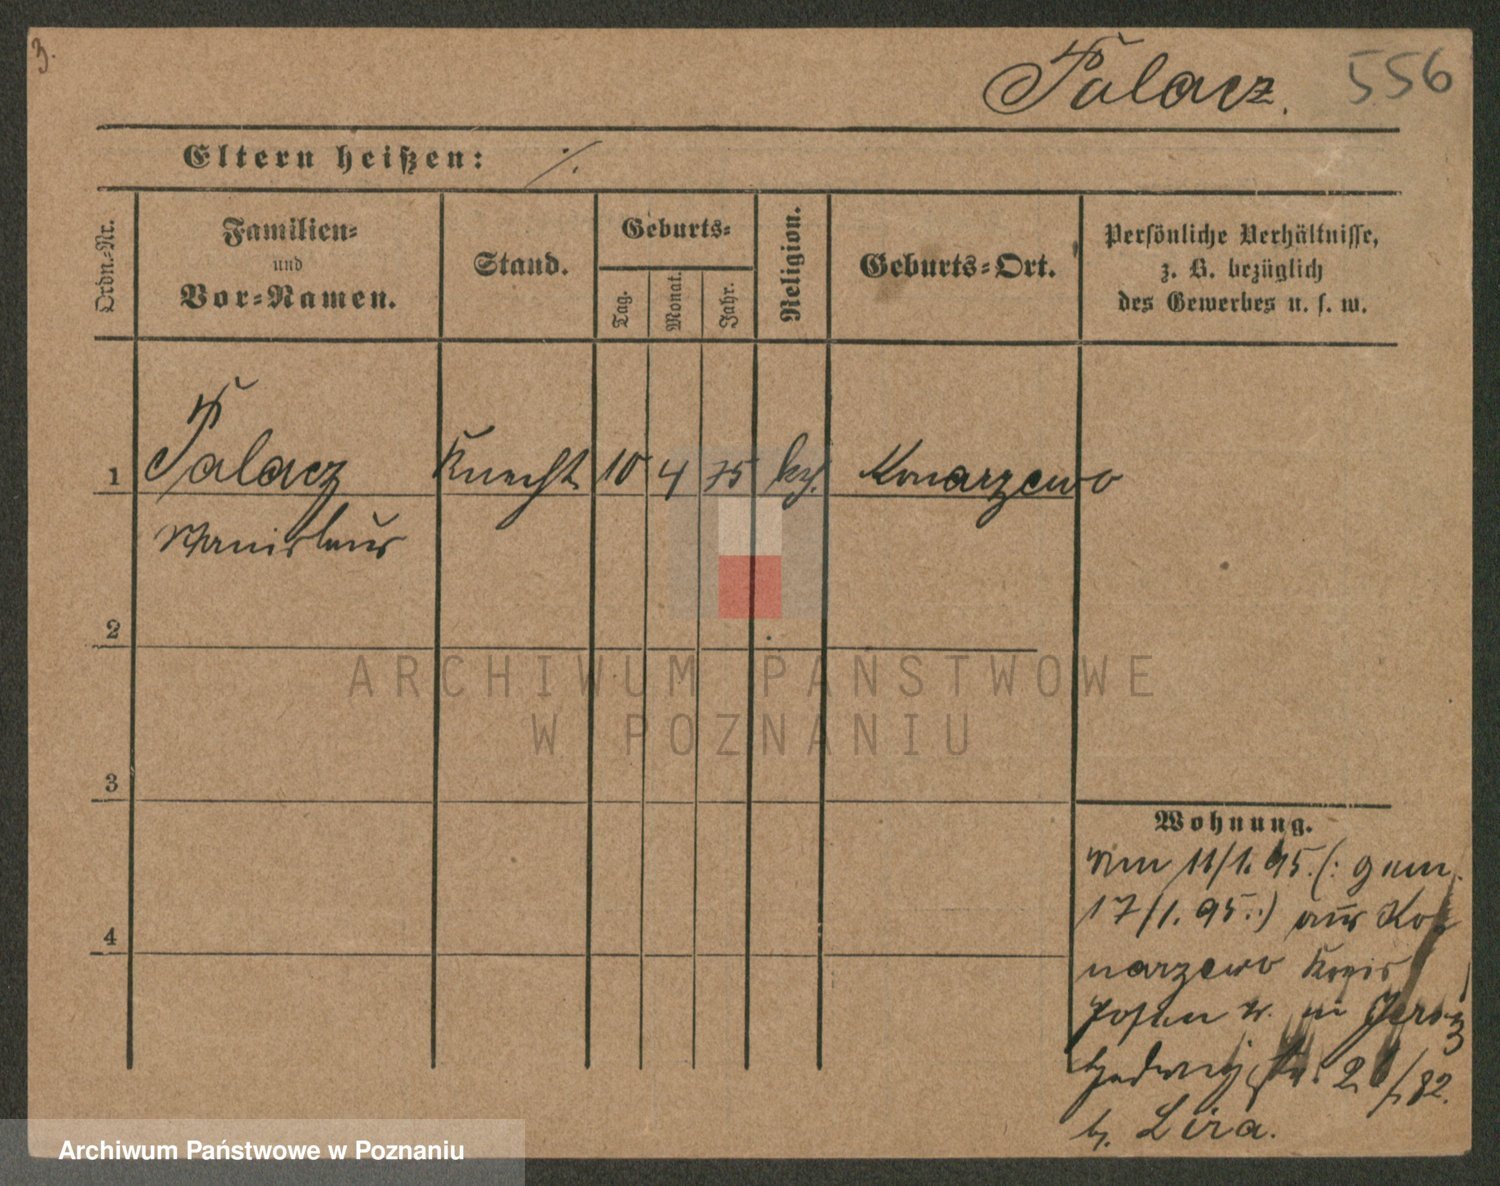 3.
Palacz. 556
Eltern heißen: ·/.
Ordn.-Nr.
Familien-
und
Vor-Namen.
Stand.
Geburts-
Tag.
Monat.
Jahr.
Religion.
Geburts-Ort.
Persönliche Verhältnisse,
z. B. bezüglich
des Gewerbes u. s. w.
1 Palacz Knecht 10 4 75 kth. Konarzewo
Stanislaus
2
3
4
Wohnung.
Am 11/1. 95. (: gem.
17/1. 95. :) aus Ko-
narzewo Kreis
Posen W. in Jersitz
Hedwigstr. /82.
b. Lira.
ARCHIWUM PAŃSTWOWE
W POZNANIU
Archiwum Państwowe w Poznaniu